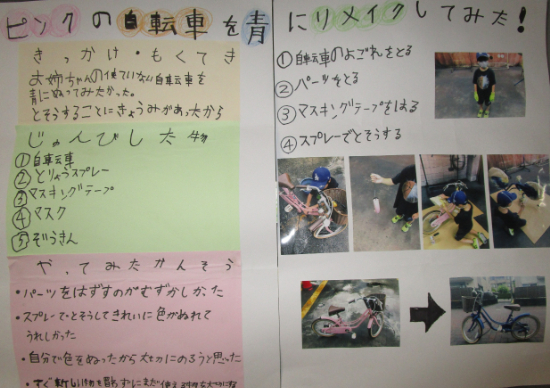 ピンクの自転車を青にリメイクしてみた!
きっかけ・もくてき
お姉ちゃんの使ていない自転車を
青にぬってみたかった。
とそうすることにきょうみがあったから
じゅんびした物
①自転車
②とりょうスプレー
③マスキングテープ
④マスク
⑤ぞうきん
やってみたかんそう
・パーツをはずすのがむずかしかった
・スプレーでとそうしてきれいに色がぬれて
うれしかった
・自分で色をぬったから大切にのろうと思った
・すぐ新しい物を買わずにまだ使える
①自転車のよごれをとる
②パーツをとる
③マスキングテープをはる
④スプレーでとそうする